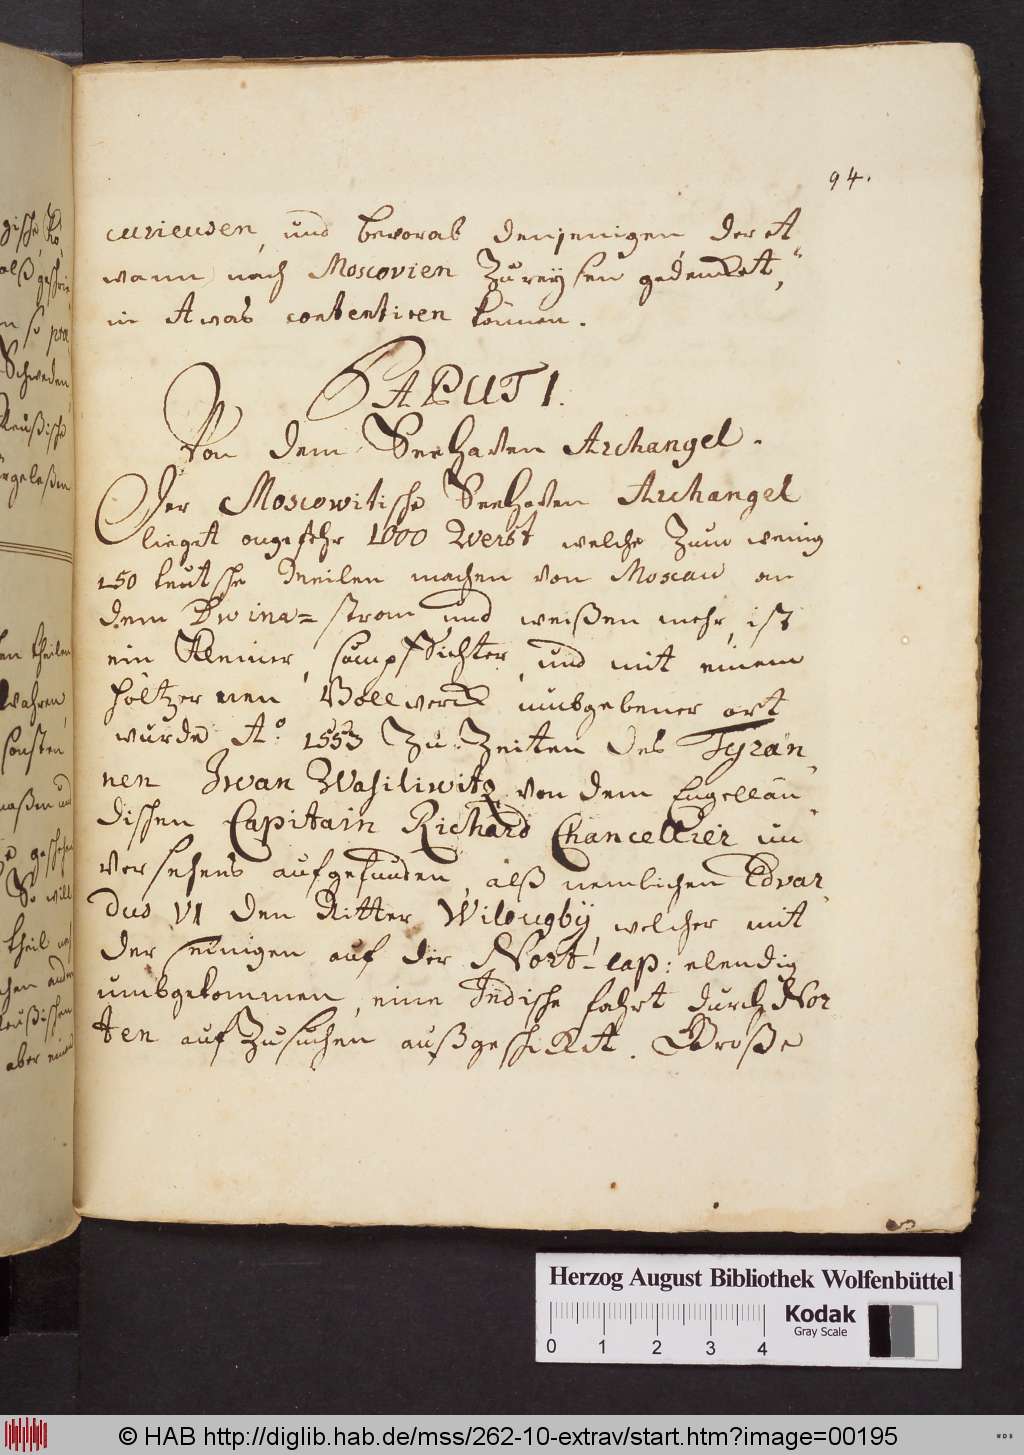 94.
curieusen, und bevorab denjenigen, der et
wann nach Moscovien zu reysen gedencket,
in etwas contentiren können.
CAPUT 1.
Von dem Seehaven Archangel.
Der Moscowitische Seehaven Archangel
lieget ongefehr 1000 Werst welche zum wenig
150 teutsche Meilen machen von Moscau an
dem Dwina= strom und weißen mehr, ist
ein kleiner, sumpfichter, und mit einem
höltzernen Bollwerck umbgebener ort
wurde Aº. 1553 zu Zeiten des Tyran
nen Iwan Wasiliwitz von dem Engellän
dischen Capitain Richard Chancellier un
versehens aufgefunden, alß nemlichen Edvar
dus VI den Ritter Wilougby, welcher mit
der seinigen auf der Nort-cap: elendig
umbgekommen, eine Indische fahrt durch Nor
ten aufzusuchen außgeschicket. Große
Herzog August Bibliothek Wolfenbüttel
Kodak
Gray Scale
0 1 2 3 4
© HAB http://diglib.hab.de/mss/262-10-extrav/start.htm?image=00195